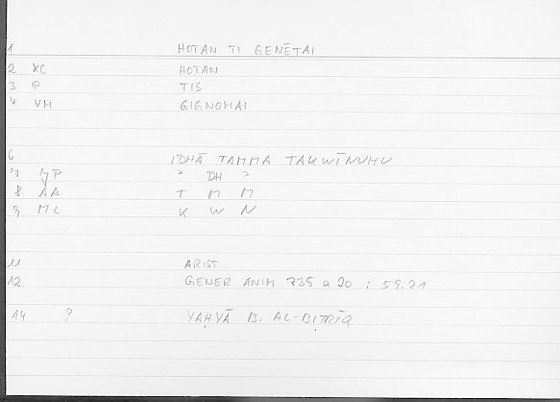 1 HOTAN TI GENĒTAI
2 XC HOTAN
3 @ TIS
4 VM GIGNOMAI
6 IDHĀ TAMMA TAKWĪNUHU
7 P ʾ DH ʾ
8 AA T M M
9 ML K W N
11 ARIST
12 GENER ANIM 735 a 20 ; 59.21
14 ? YAḤYĀ B. AL-BIṬRĪQ